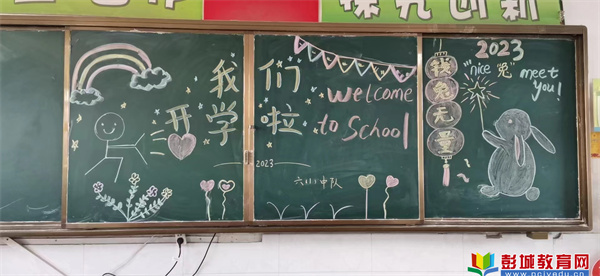 探究创新
我们
开学啦
2023
六 中队
Welcome
to School
钱兔无量
2023
"nice 兔"
meet
you!
彭城教育网